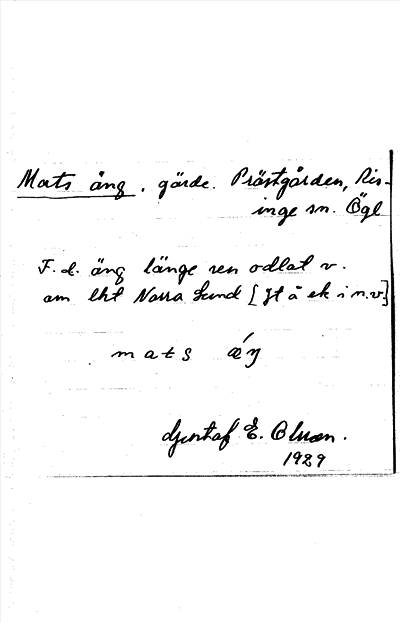 Mats äng. gärde. Prästgården, Ris-
inge sn. Ögl
F. d. äng länge sen odlat v.
om lht Norra Sund [Jt å ek i n.v]
mats ǽŋ
Gustaf E. Olsson.
1929